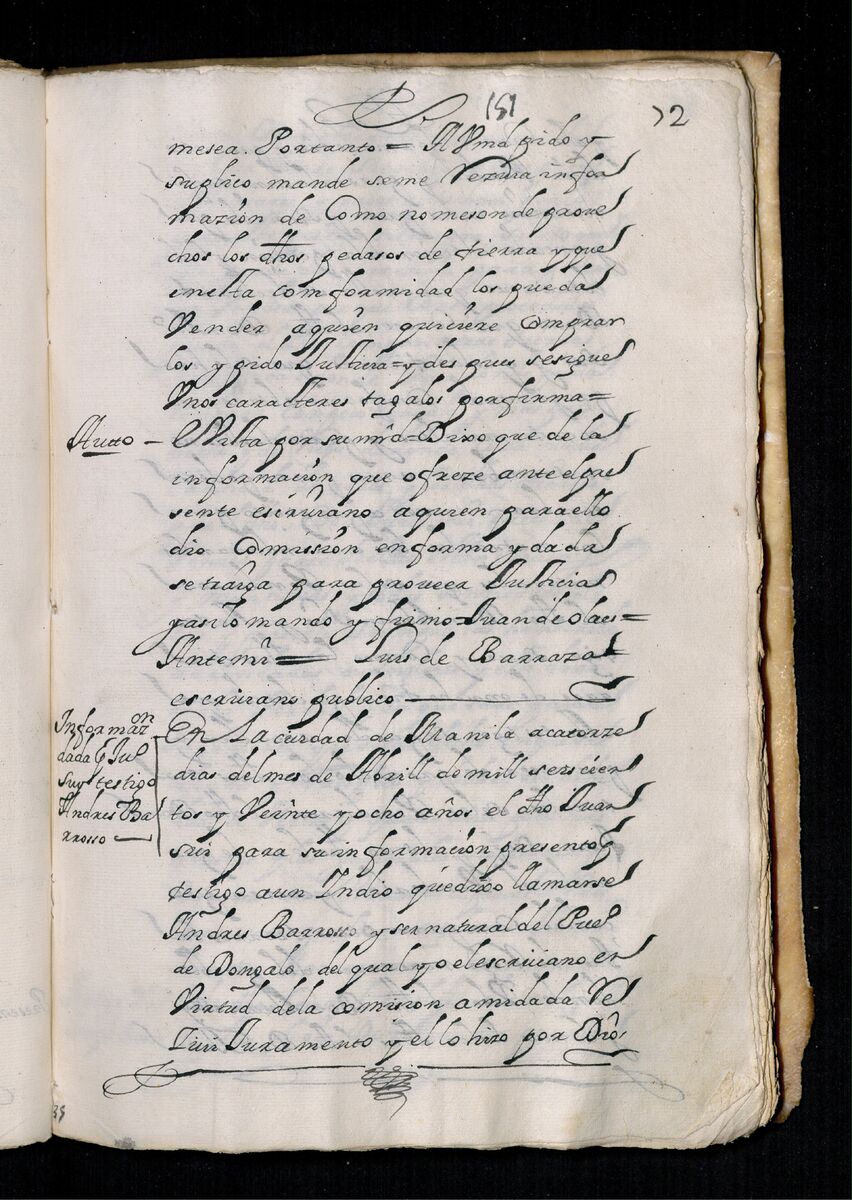 151
72
mesea. Portanto = A Vmd pido y
suplico mande seme Reziua infor
mazion de Como no me son de prove
chos los dhos pedasos de tierra y que
en esta comformidad los pueda
Vender a quien quiciere Comprar
los y pido Justicia = y despues se sigue
Vnos caracteres tagalos por firma =
Autto – Vista por su mrd = Dixo que de la
informacion que ofreze ante el pre
sente escriuano a quien para ello
dio Comission en forma y dada
se traiga para proveer Justicia
y asi lo mando y firmo = Juan de olaes =
Ante mi = Luis de Barraza
escriuano publico
Informazon
dada pr Jul
suy testigo
Andres Ba
rrosso
En La ciudad de Manila a catorze
dias del mes de Abrill de mill seiscien
tos y Veinte y ocho años el dho Juan
sui para su informacion presento pr
testigo a un Indio que dixo llamarse
Andres Barrosso y ser natural del Puo
de Dongalo del qual yo el escriuano en
Virtud de la comision a mi dada Re
ciui Juramento y el lo hizo por Dios